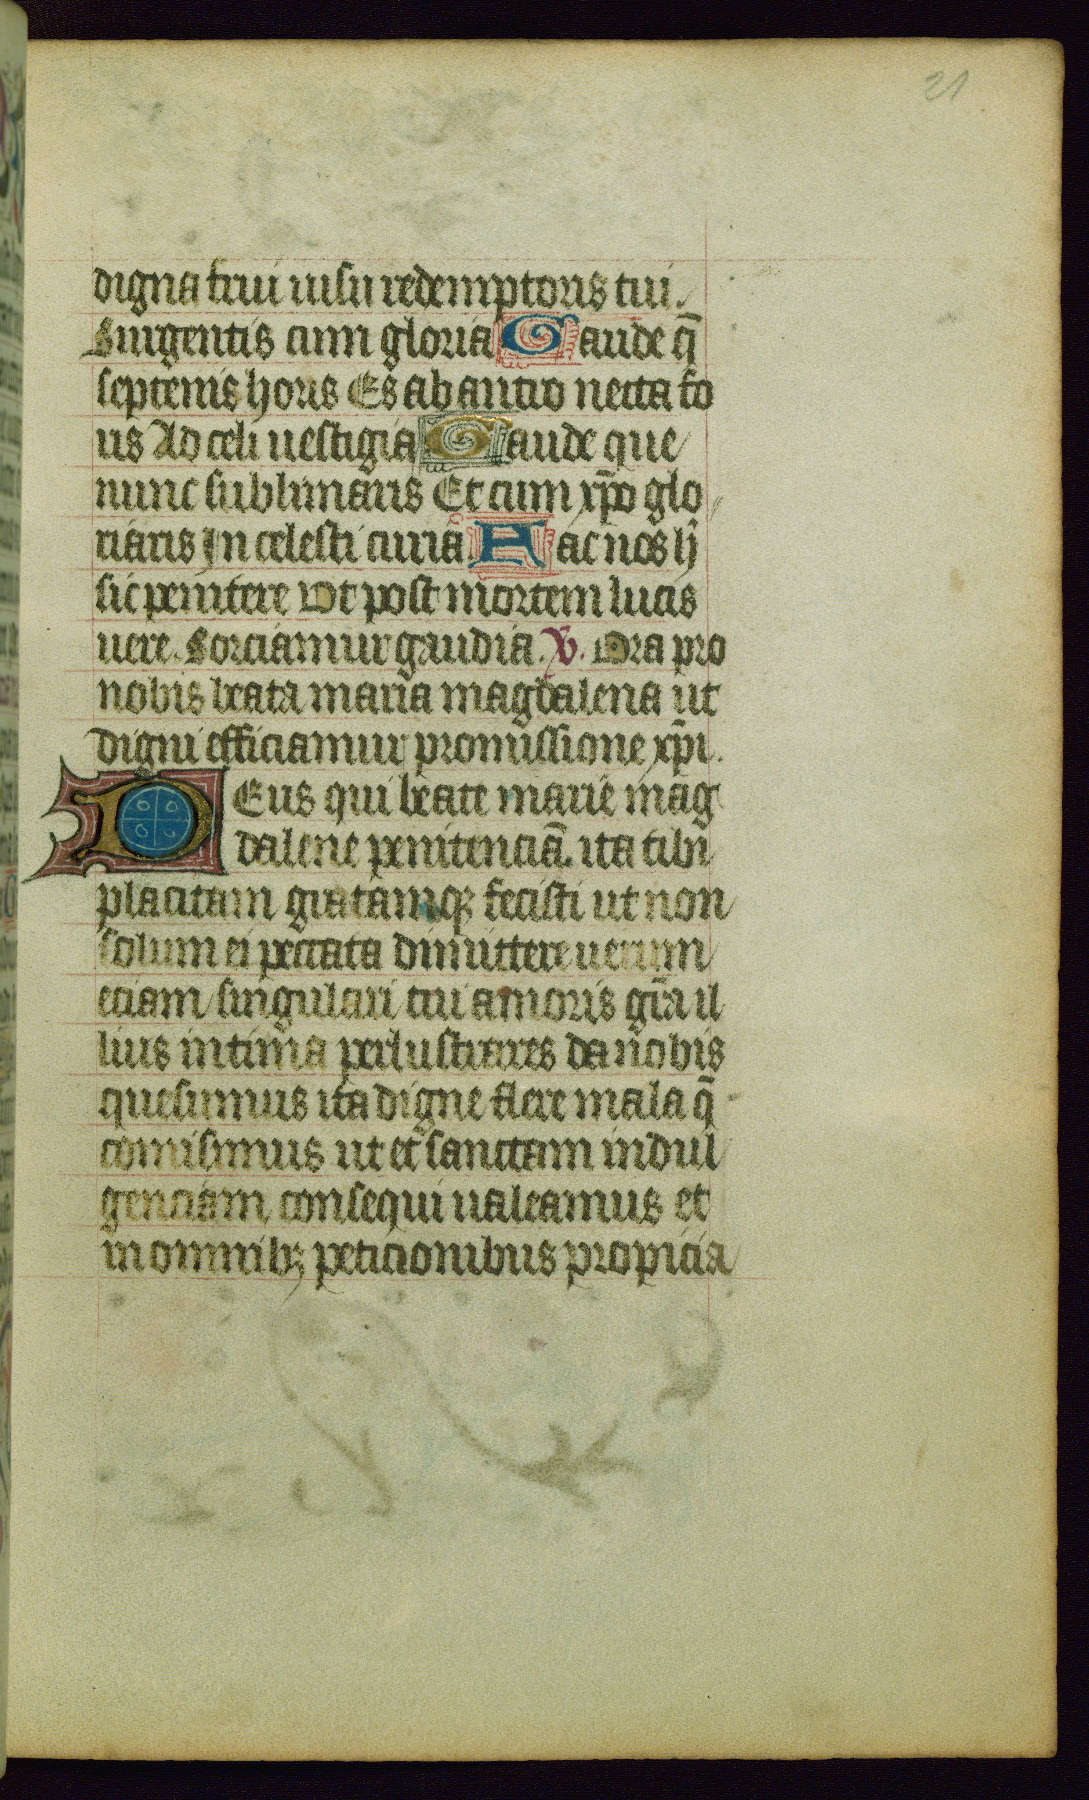 21
digna frui uisu redemptoris tui.
Surgentis cum gloria Gaude q̄
septenis horis Es ab antro uecta fo
ris Ad celi uestigia Gaude que
nunc sublimaris Et cum xp̄o glo
riaris In celesti curia. Hac nos h̄
sic penitere Vt post mortem lucis
uere. Sorciamur gaudia. V. Ora pro
nobis beata maria magdalena ut
digni efficiamur promissione xp̄i.
Deus qui beate marie mag
dalene penitenciā. ita tibi
placitam gratamq; fecisti ut non
solum ei peccata dimittere uerum
eciam singulari tui amoris gr̄a il
lius intima perlustrares da nobis
quesumus ita digne flere mala q̄
comisimus ut et sanctam indul
genciam consequi ualeamus et
in omnib; peticionibus propicia